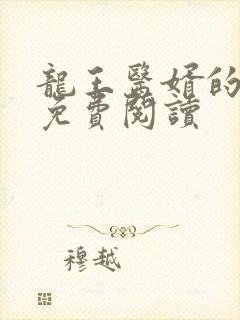 龍王醫婿的
免費閱讀
穆越